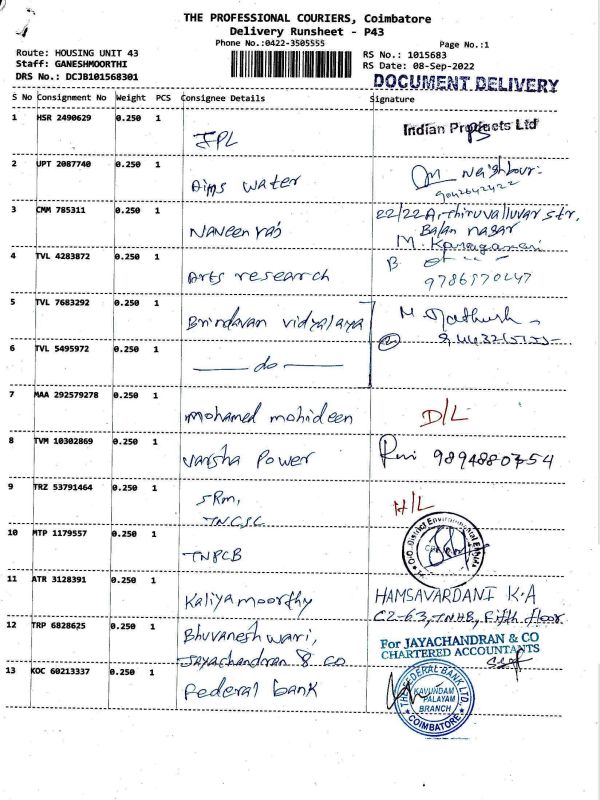 THE PROFESSIONAL COURIERS, Coimbatore
Delivery Runsheet - P43
Phone No.:0422-3505555
Page No.:1
Route: HOUSING UNIT 43
RS No.: 1015683
Staff: GANESHMOORTHI
RS Date: 08-Sep-2022
DRS No.: DCJB101568301
DOCUMENT DELIVERY
S No Consignment No Weight PCS Consignee Details Signature
1 HSR 2490629 0.250 1
IPL
Indian Products Ltd
2 UPT 2087740 0.250 1
Aims water
Neighbour
9042642422
3 CMM 785311 0.250 1
Naveen raj
22/22A, Thiruvalluvar str,
Balan nagar
4 TVL 4283872 0.250 1
Arts research
B.
5 TVL 7683292 0.250 1
Brindavan vidyalaya
6 TVL 5495972 0.250 1
do
7 MAA 292579278 0.250 1
Mohamed mohideen
D/L
8 TVM 10302869 0.250 1
Varsha Power
9894880754
9 TRZ 53791464 0.250 1
SRm,
TNCSC
H/L
10 MTP 1179557 0.250 1
TNPCB
District Environmental
11 ATR 3128391 0.250 1
Kaliyamoorthy
HAMSAVARDANI K.A
C2-63, TNHB, Fifth floor
12 TRP 6828625 0.250 1
Bhuvaneshwari,
Jayachandran & co
For JAYACHANDRAN & CO
CHARTERED ACCOUNTANTS
13 KOC 60213337 0.250 1
Federal bank
THE FEDERAL BANK LTD.
KAVUNDAM
PALAYAM
BRANCH
COIMBATORE